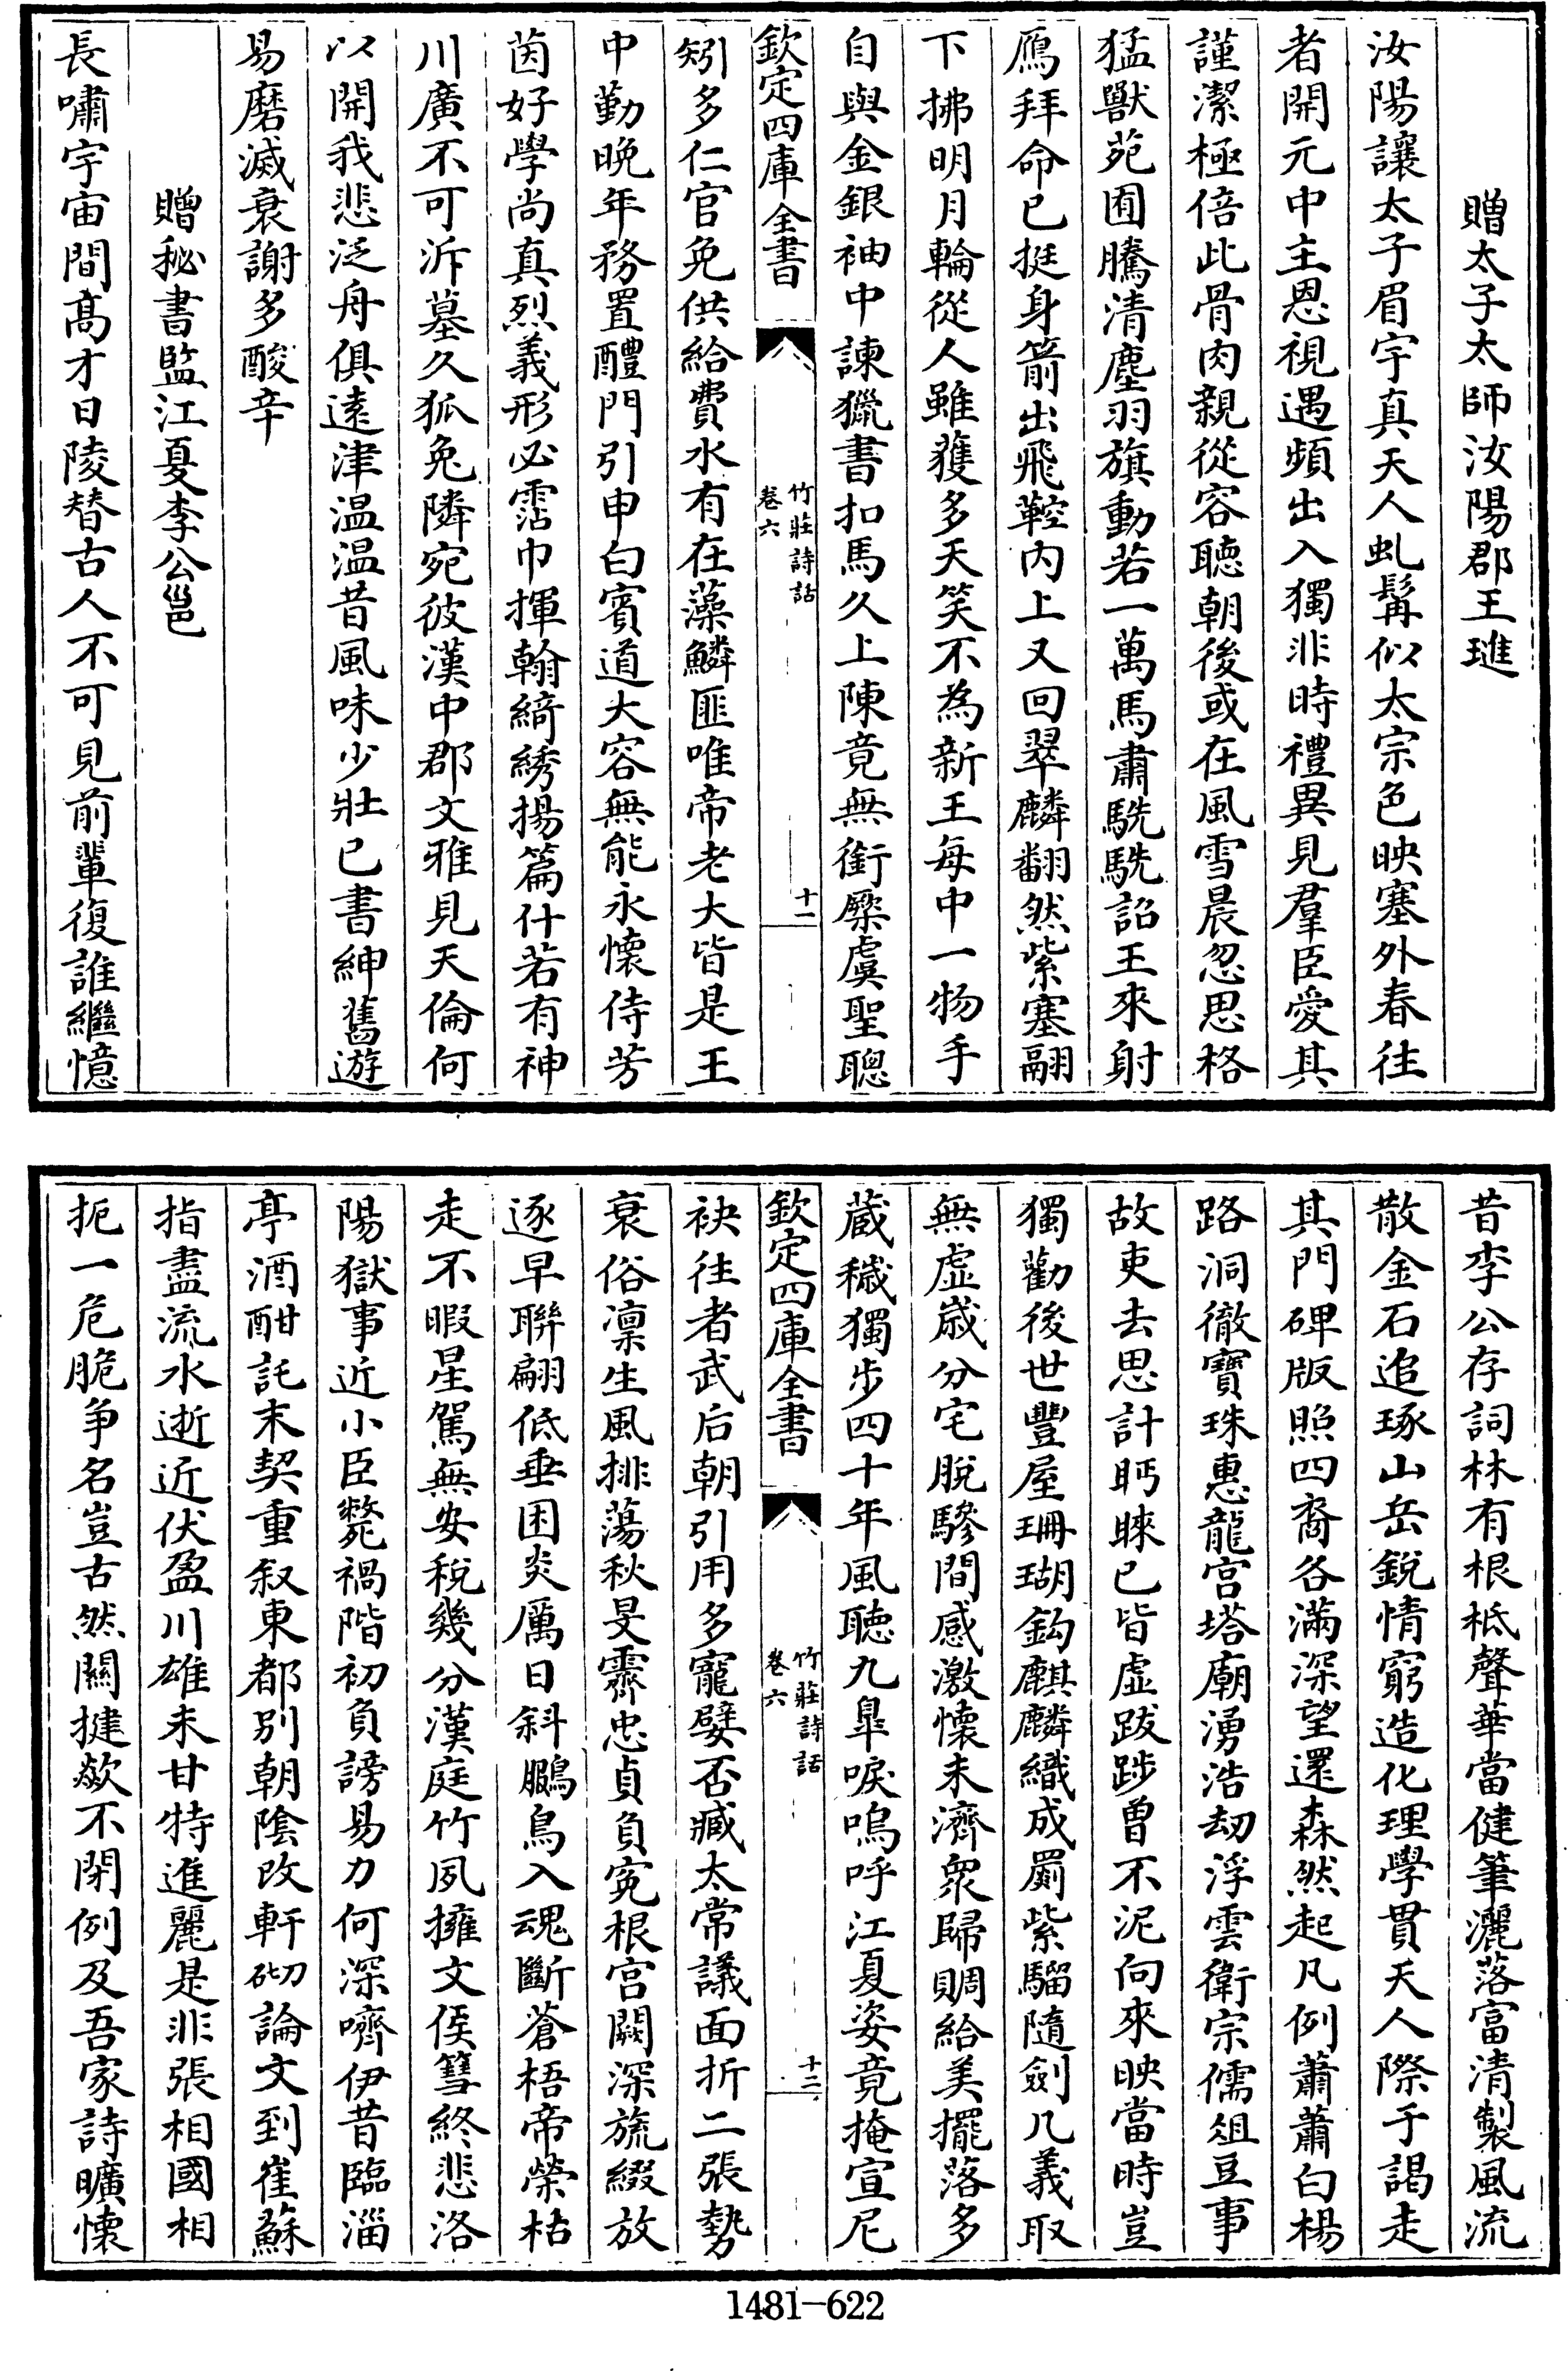 贈太子太師汝陽郡王璡
汝陽讓太子眉宇真天人虬髯似太宗色映塞外春往
者開元中主恩視遇頻出入獨非時禮異見羣臣愛其
謹潔極倍此骨肉親從容聽朝後或在風雪晨忽思格
猛獸苑囿騰清塵羽旗動若一萬馬肅駪駪詔王來射
鴈拜命已挺身箭出飛鞚内上又回翠麟翻然紫塞翮
下拂明月輪從人雖獲多天笑不為新王每中一物手
自與金銀袖中諫獵書扣馬久上陳竟無銜橜虞聖聰
欽定四庫全書
竹莊詩話
卷六
十一
矧多仁官免供給費水有在藻鱗匪唯帝老大皆是王
申勤晚年務置醴門引申白賓道大容無能永懷侍芳
茵好學尚真烈義形必霑巾揮翰綺綉揚篇什若有神
川廣不可泝墓久狐兔隣宛彼漢中郡文雅見天倫何
以開我悲泛舟俱遠津温温昔風味少壯已書紳舊遊
易磨滅衰謝多酸辛
贈秘書監江夏李公邕
長嘯宇宙間髙才日陵替古人不可見前輩復誰繼憶
昔李公存詞林有根柢聲華當健筆灑落富清製風流
散金石追琢山岳鋭情窮造化理學貫天人際于謁走
其門碑版照四裔各滿深望還森然起凡例蕭蕭白楊
路洞徹寶珠惠龍宫塔廟湧浩刼浮雲衛宗儒俎豆事
故吏去思計眄睞已皆虛跋踄曾不泥向來映當時豈
獨勸後世豐屋珊瑚鈎麒麟織成罽紫騮隨劍几義取
無虛歳分宅脱驂間感激懷未濟衆歸賙給美擺落多
蔵穢獨步四十年風聽九臯唳嗚呼江夏姿竟掩宣尼
欽定四庫全書
竹莊詩話
卷六
十二
袂往者武后朝引用多寵嬖否臧太常議面折二張勢
衰俗凛生風排蕩秋旻霽忠貞負寃根宫闕深旒綴放
逐早聯翩低垂困炎厲日斜鵩鳥入魂斷蒼梧帝榮枯
走不暇星駕無安税幾分漢庭竹夙擁文侯篲終悲洛
陽獄事近小臣斃禍階初負謗易力何深嚌伊昔臨淄
亭酒酣託末契重叙東都别朝陰改軒砌論文到崔蘇
指盡流水逝近伏盈川雄未甘特進麗是非張相國相
扼一危脆争名豈古然關揵欻不閉例及吾家詩曠懷
1481-622